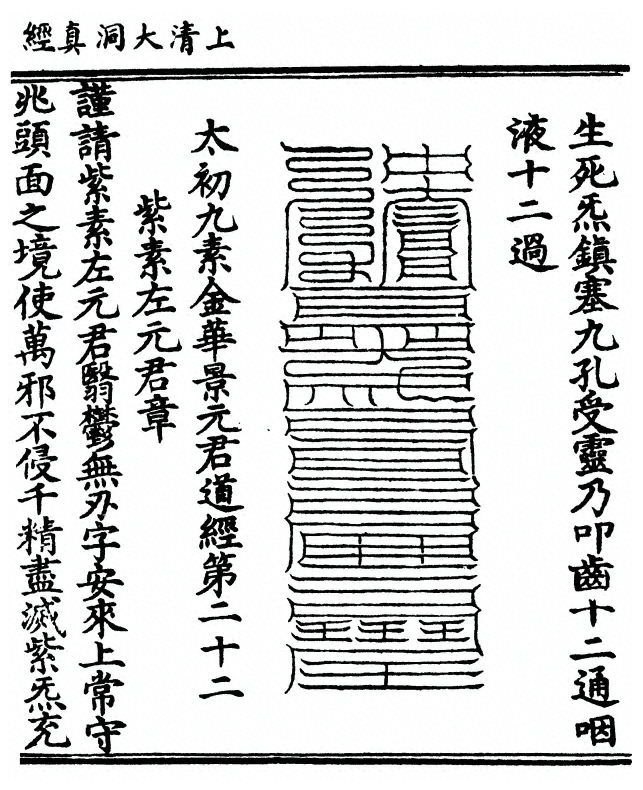 上清大洞真經
生死炁鎮塞九孔受靈乃叩齒十二通咽
液十二過
太初九素金華景元君道經第二十二
紫素左元君章
謹請紫素左元君翳鬱無刃字安來上常守
兆頭面之境使萬邪不侵千精盡滅紫炁充